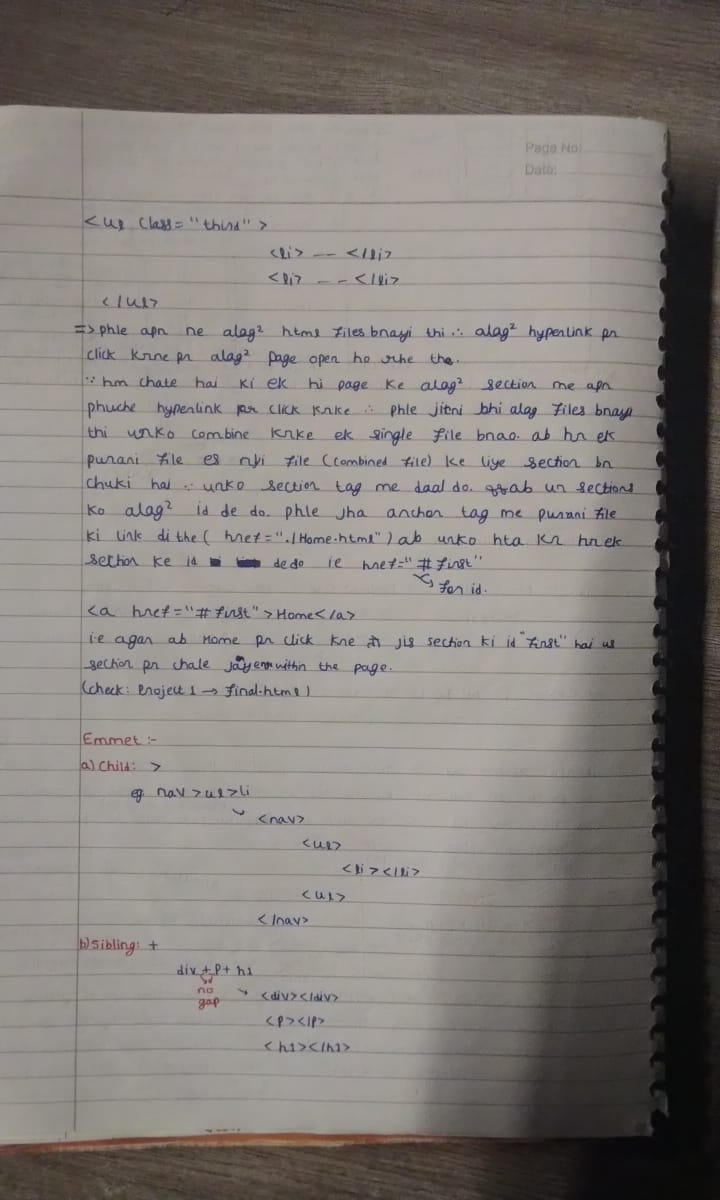 Page No:
Date:
<ul class="third">
<li> -- </li>
<li> -- </li>
</ul>
=> phle apn ne alag² html files bnayi thi ∴ alag² hyperlink pr
click krne pr alag² page open ho rhe the.
∵ hm chate hai ki ek hi page ke alag² section me apn
phuche hyperlink par click krke ∴ phle jitni bhi alag files bnayi
thi unko combine krke ek single file bnao. ab hr ek
purani file es nyi file (combined file) ke liye section bn
chuki hai ∴ unko section tag me daal do. ab un sections
ko alag² id de do. phle jha anchor tag me purani file
ki link di the ( href="./Home.html") ab unko hta kr hr ek
section ke id dedo ie href="#first"
for id.
<a href="#first">Home</a>
i.e agar ab Home pr click kre to jis section ki id "first" hai us
section pr chale jayenge within the page.
(check: Project 1 → final.html)
Emmet :-
a) Child: >
eg nav>ul>li
<nav>
<ul>
<li></li>
<ul>
</nav>
b) Sibling: +
div+p+h1
no
gap
<div></div>
<p></p>
<h1></h1>